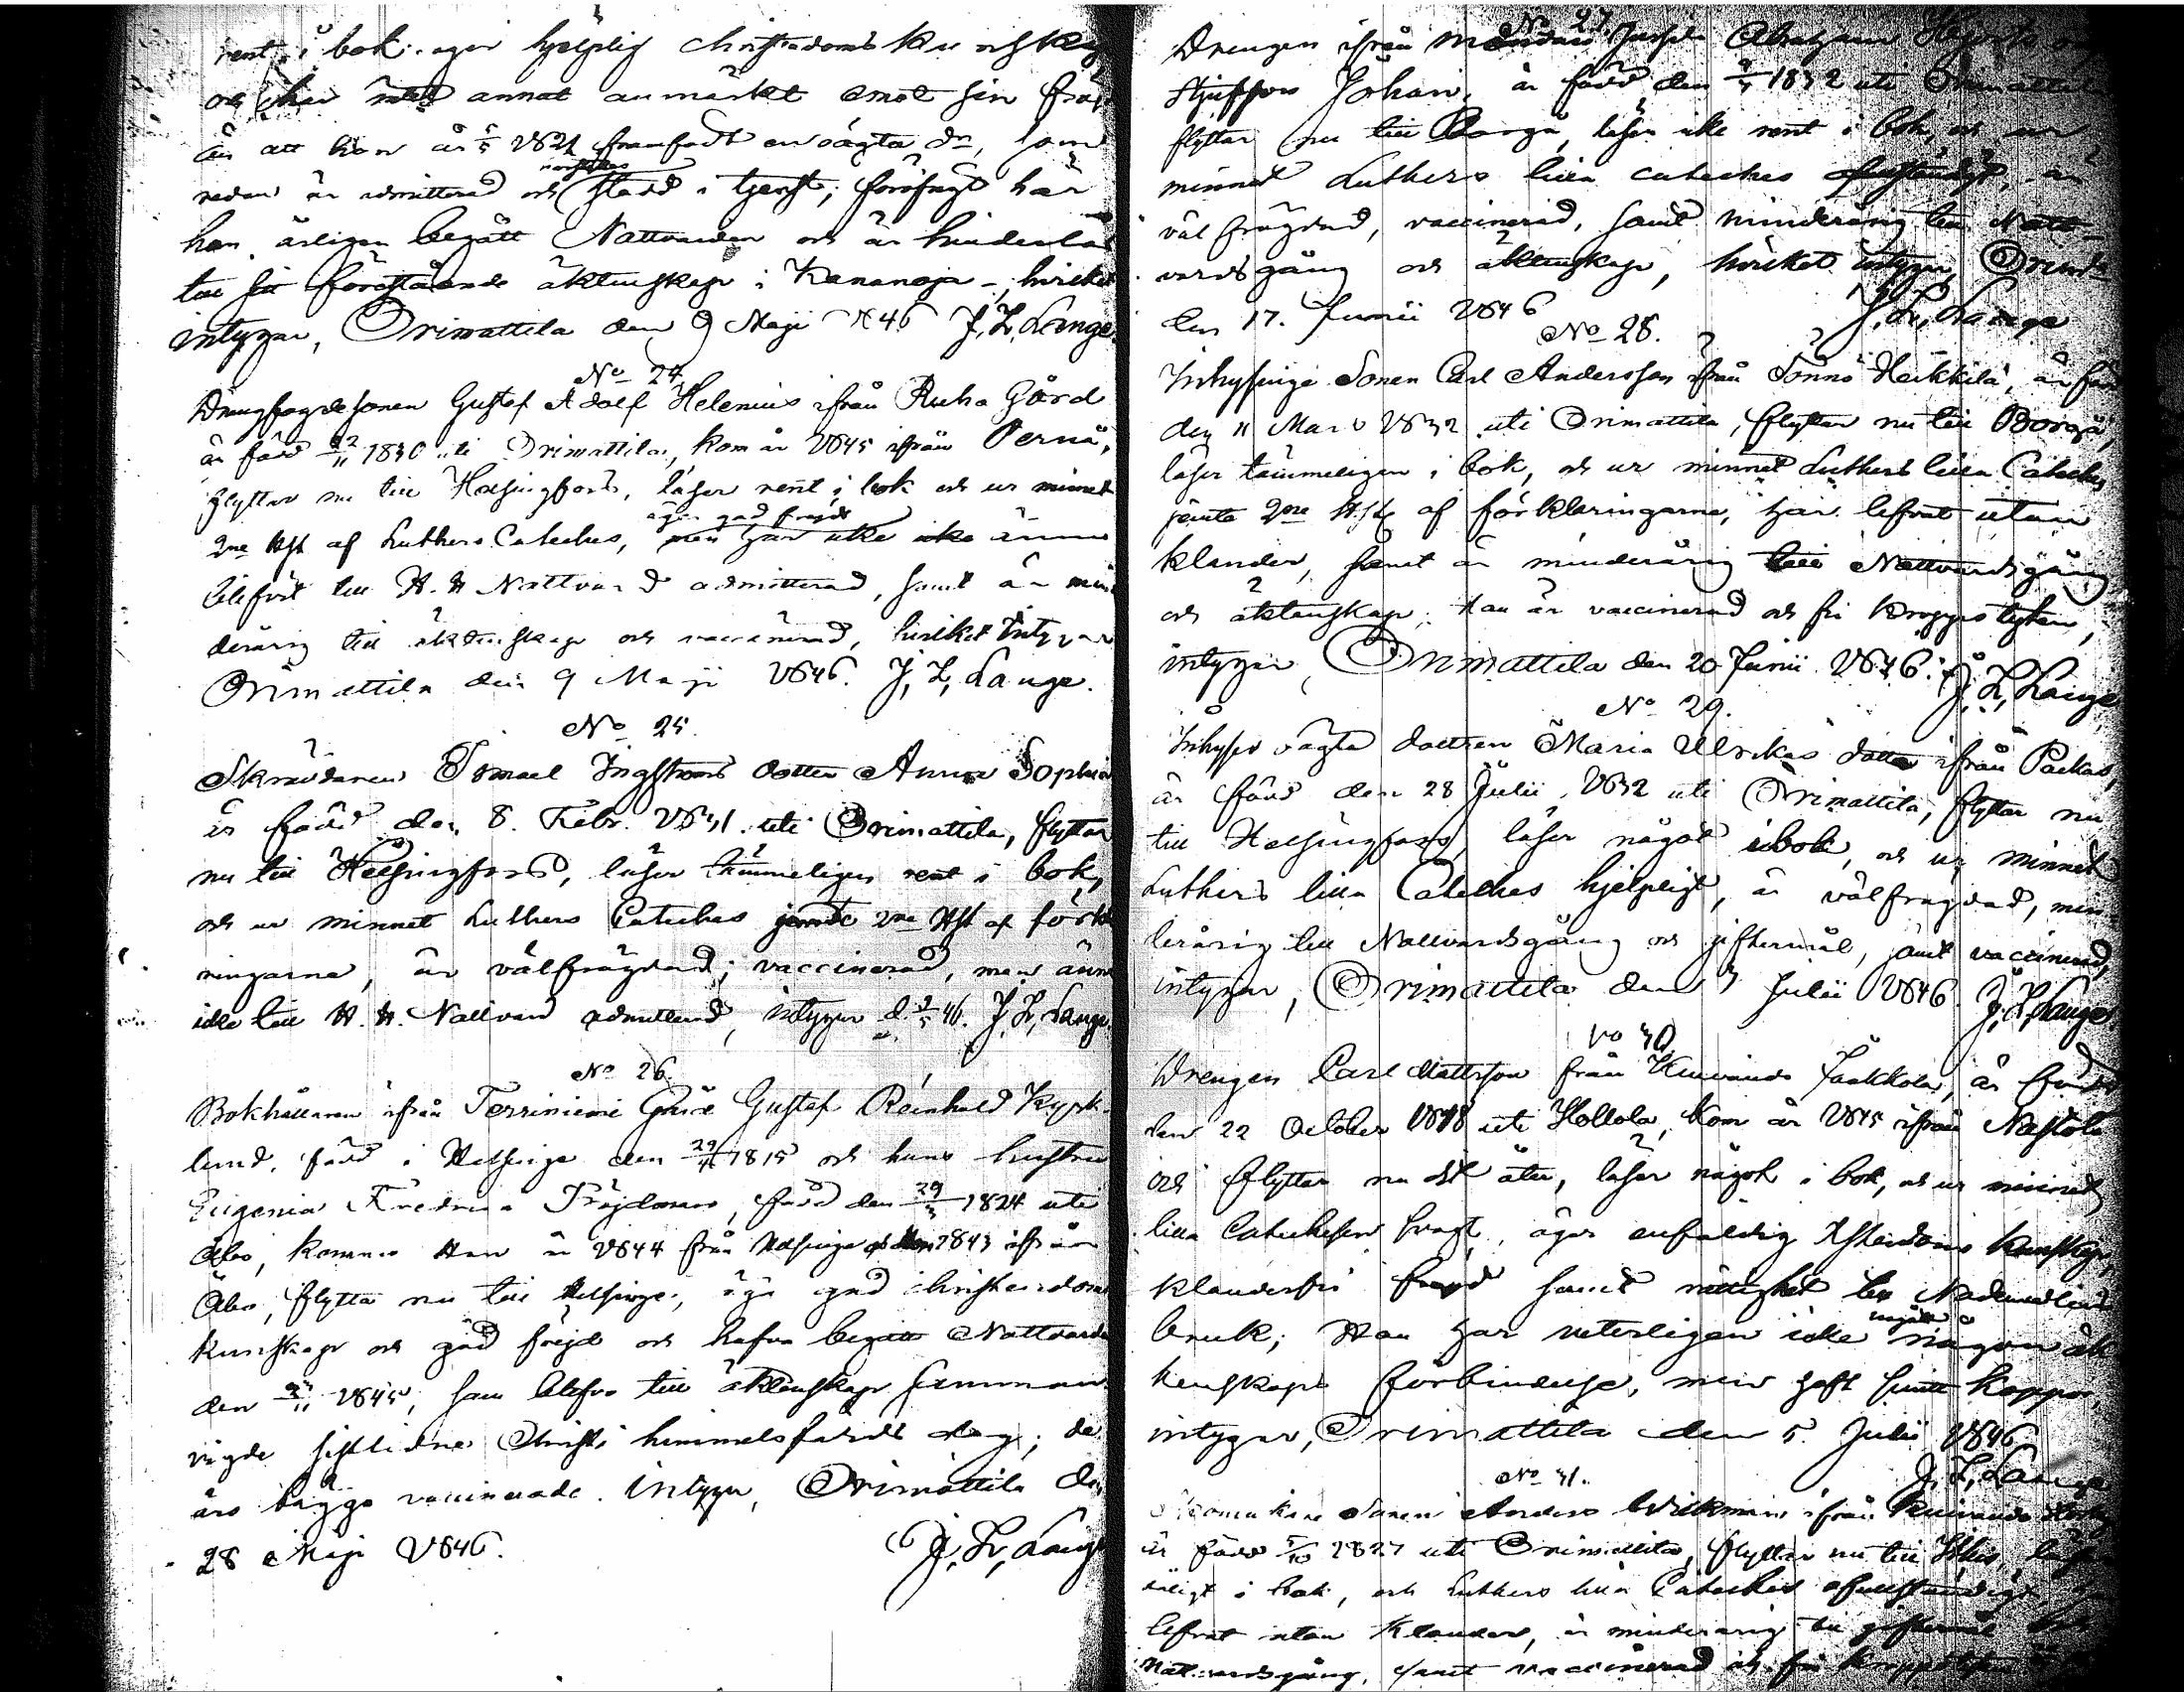 rent i bok, äger hjelplig christendoms kunskap
och har intet annat anmärkt emot sin fräjd
än att hon år 1821 framfödt en oägta dr, som
redan är admitterad och stadd i tjenst; föröfrigt har
hon årligen begått Nattvarden och är hinderlös
till sitt förestående äktenskap i Kananoja, hvilket
intygar, Orimattila den 9 Maji 1846 J. L. Lange.
No 24.
Drengfogdesonen Gustaf Adolf Helenius ifrån Ruha Gård
är född 22/11 1830 uti Orimattila, kom år 1845 ifrån Pernå,
flyttar nu till Helsingfors, läser rent i bok och ur minnet
2ne Hst af Luthers Catechес, äger god frejd icke ännu
blifvit till H. H Nattvard admitterad, samt är min
derårig till äktenskap och vaccinerad, hvilket intygar
Orimattila den 9 Maji 1846. J. L. Lange.
No 25.
Skräddaren Ismael Ingströms dotter Anna Sophia
är född den 8. Febr. 1831. uti Orimattila, flyttar
nu till Helsingfors, läser tämmeligen rent i bok,
och ur minnet Luthers Cateches jemte 2ne Hst af förkla
ringarna, är välfrägdad, vaccinerad, men ännu
icke till H. H. Nattvard admitterad, intygar J. L. Lange.
No 26.
Bokhållaren ifrån Terriniemi Gård Gustaf Reinhold Kyrk
lund, född i Helsinge den 29/4 1815 och hans hustru
Eugenia Fredrica Fröjdman, född den 29/3 1824 uti
Åbo, komne Han år 1844 från Helsinge och Hon 1843 ifrån
Åbo, flytta nu till Helsinge, äga god christendoms
kunskap och god fräjd och hafva begått Nattvarden
den 1845, som blefvo till äktenskap samman
vigde sistlidne Christi himmelsfärds dag; de
äro bägge vaccinerade. intygar, Orimattila den
28 Maji 1846. J. L. Lange
No 27.
Drengen ifrån Jussila Abraham
Styfson Johan, är född den 1832 uti Orimattila
flyttar nu till Borgå, läser icke rent i bok, och ur
minnet Luthers lilla cateches ofullständigt, är
väl frägdad, vaccinerad, samt minderårig till Natt-
vardsgång och äktenskap, hvilket intygar, Orimattila
den 17. Junii 1846 J. L. Lange
No 28.
Inhysinge Sonen Carl Andersson ifrån Sönnö Heikkilä, är född
den 11 Mars 1832 uti Orimattila, flyttar nu till Borgå,
läser tämmeligen i bok, och ur minnet Luthers lilla Cateches
jemte 2ne H.st af förklaringarne, har lefvat utan
klander, samt är minderårig till Nattvardsgång
och äktenskap. Han är vaccinerad och fri kroppslyten,
intygar, Orimattila den 20 Junii 1846. J. L. Lange
No 29.
Inhyses oägta dottren Maria Ulrikas dotter ifrån Packas,
är född den 28 Julii 1832 uti Orimattila, flyttar nu
till Helsingfors, läser något i bok, och ur minnet
Luthers lilla Cateches hjelpligt, är välfrägdad, min
derårig till Nattvardsgång och giftermål, samt vaccinerad,
intygar, Orimattila den 3 Julii 1846. J. L. Lange
No 30.
Drengen Carl Mattsson från Kuivando Jaakkola, är född
den 22 October 1818 uti Hollola, kom år 1845 ifrån Nastola
och flyttar nu dit åter, läser något i bok, och ur minnet
lilla Catechesen svagt, äger enfaldig Xstendoms kunskap,
klanderfri frejd samt rättighet till Nademedlens
bruk; Han har veterligen icke ingått någon äk
tenskaps förbindelse, men haft sjelf koppor,
intygar, Orimattila den 5. Julii 1846
J. L. Lange
No 31.
Sonen Anders Wickman ifrån Kuivando
är född 5/10 1827 uti Orimattila, flyttar nu till Ithis, läser
dåligt i bok, och Luthers lilla Cateches ofullständigt,
lefvat utan klander, är minderårig till giftermål
Nattvardsgång, samt vaccinerad och fri kroppslyten